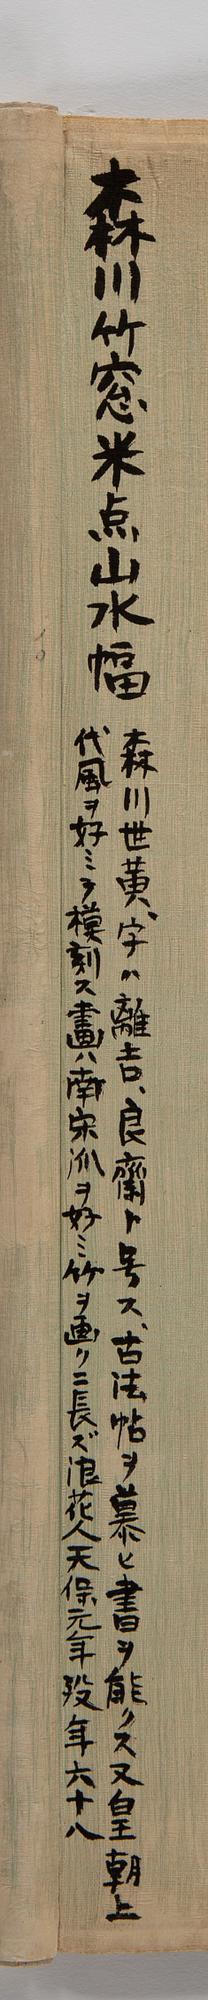 森川竹窓米点山水幅
森川世黄、字ハ離吉、良齋ト号ス、古法帖ヲ慕ヒ書ヲ能クス又皇朝上
代風ヲ好ミテ模刻ス畫ハ南宋派ヲ好ミ竹ヲ画クニ長ズ浪花人天保元年歿年六十八